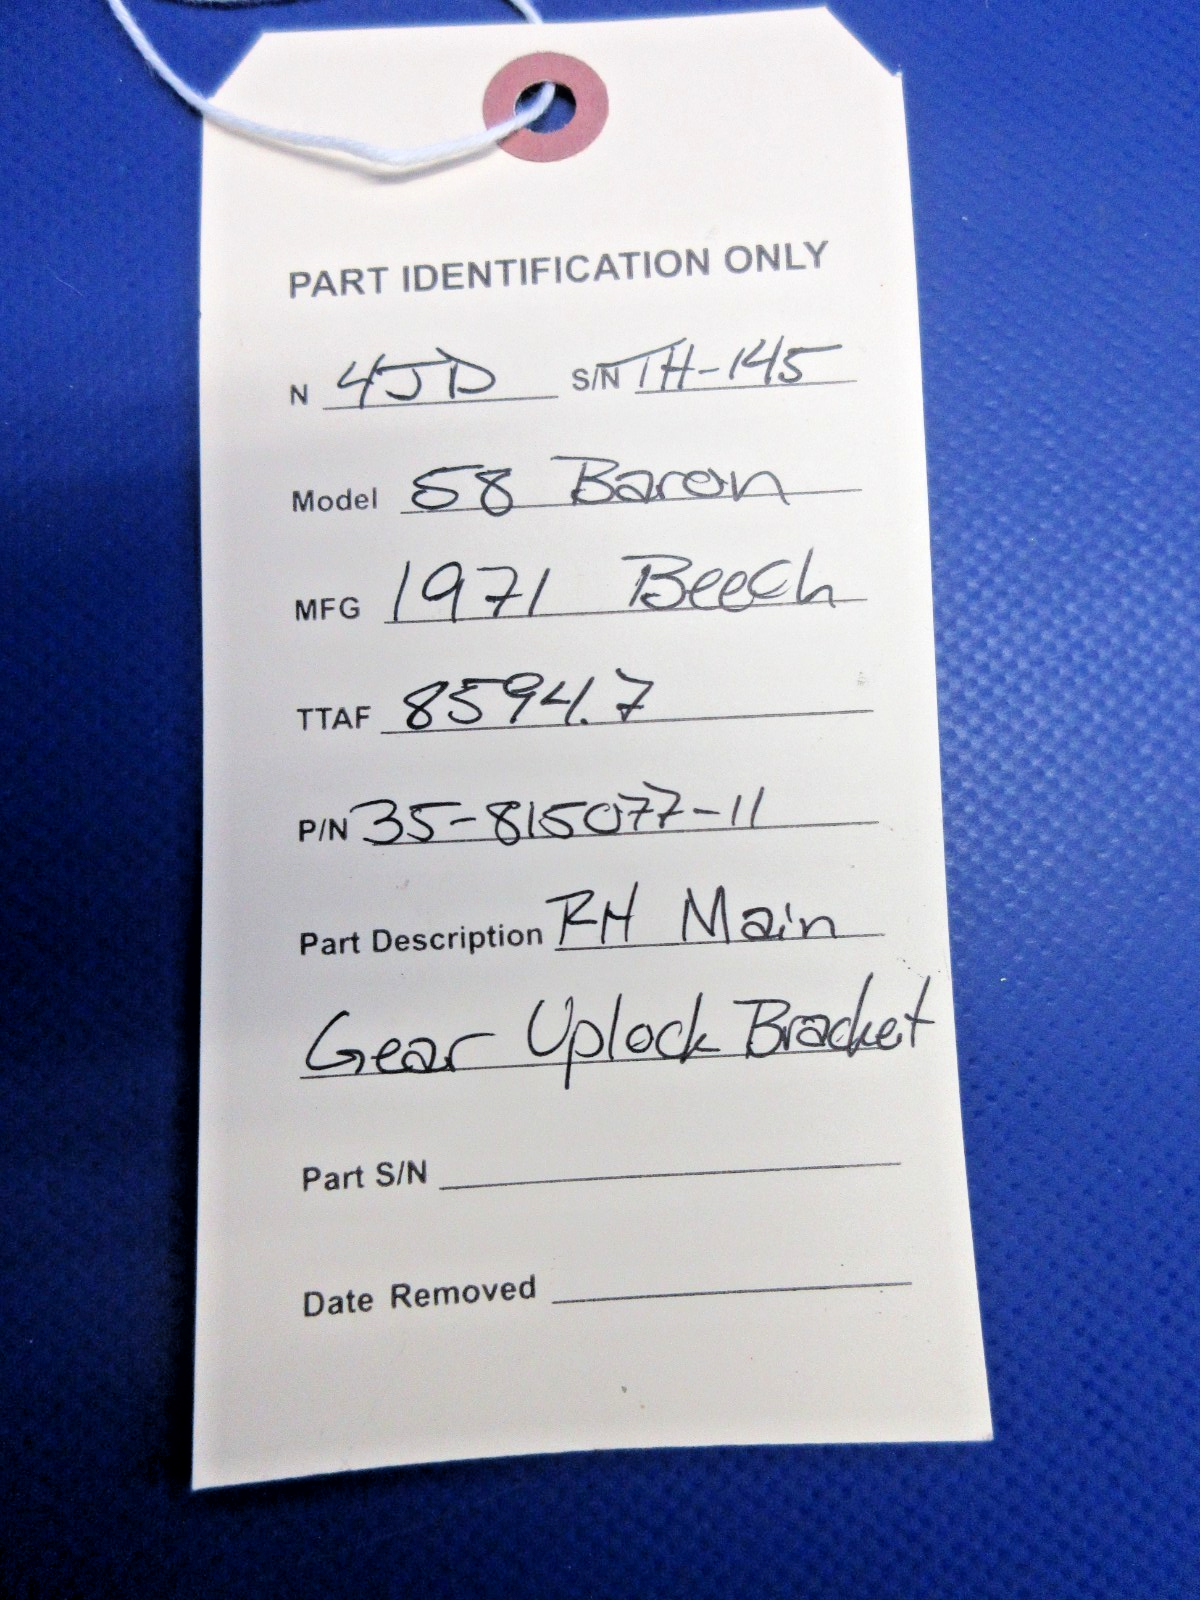 PART IDENTIFICATION ONLY
N 4JD S/N TH-145
Model 58 Baron
MFG 1971 Beech
TTAF 8594.7
P/N 35-815077-11
Part Description RH Main
Gear Uplock Bracket
Part S/N
Date Removed